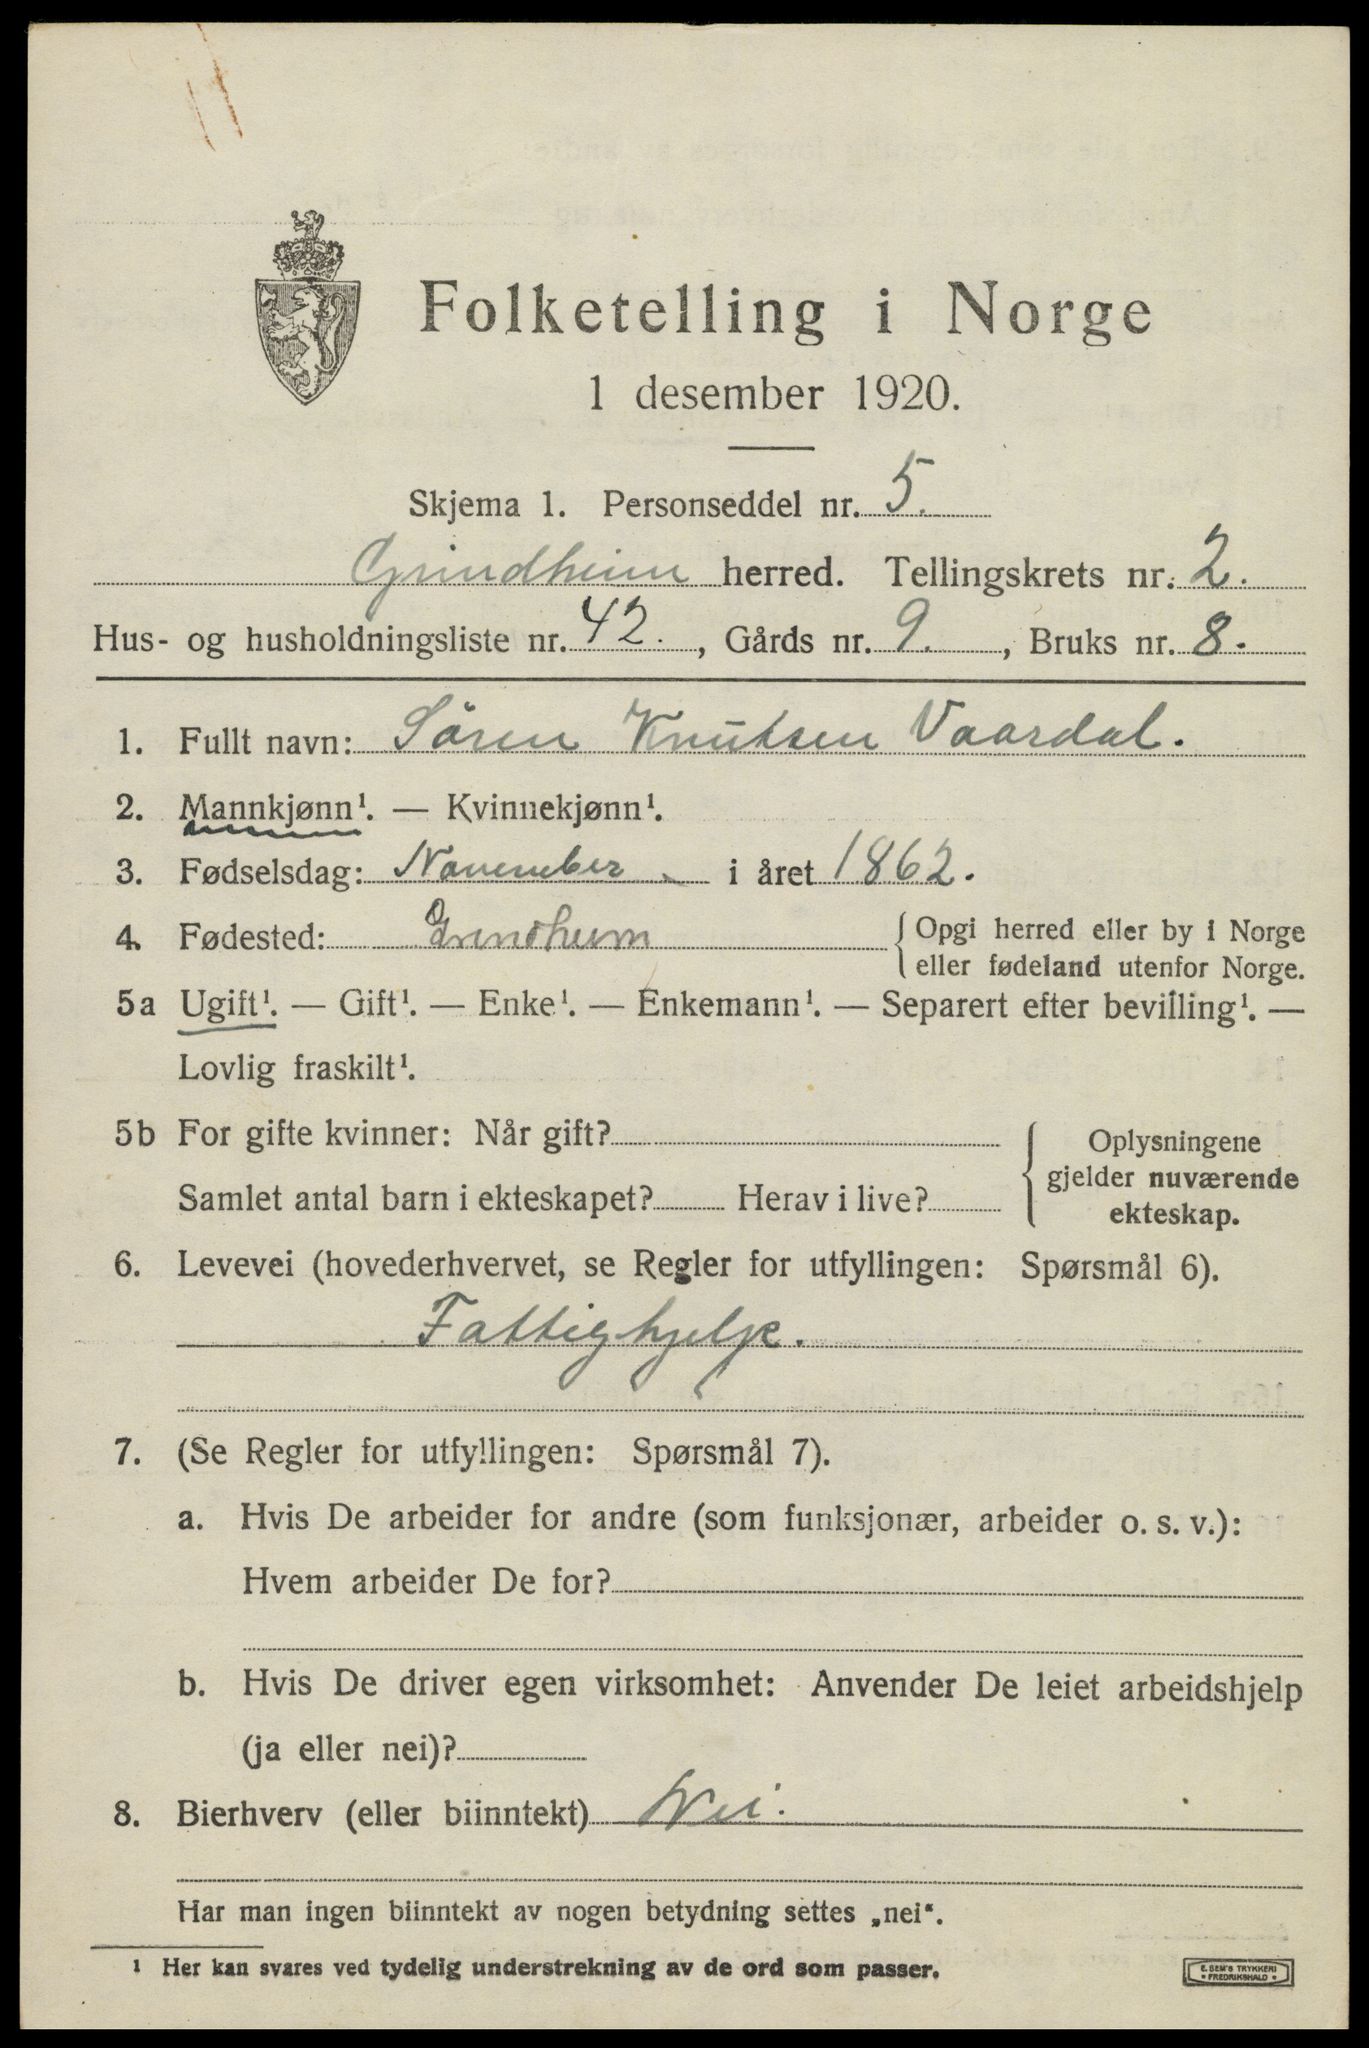 Folketelling i Norge
1 desember 1920.
Skjema 1. Personseddel nr. 5.
Grindheim herred. Tellingskrets nr. 2.
Hus- og husholdningsliste nr. 42., Gårds nr. 9., Bruks nr. 8.
1. Fullt navn: Sören Knutsen Vaardal.
2. Mannkjønn¹. — Kvinnekjønn¹.
3. Fødselsdag: November i året 1862.
4. Fødested: Grindheim { Opgi herred eller by i Norge
eller fødeland utenfor Norge.
5a Ugift¹. — Gift¹. — Enke¹. — Enkemann¹. — Separert efter bevilling¹. —
Lovlig fraskilt¹.
5b For gifte kvinner: Når gift?
Samlet antal barn i ekteskapet? Herav i live?
{ Oplysningene
gjelder nuværende
ekteskap.
6. Levevei (hovederhvervet, se Regler for utfyllingen: Spørsmål 6).
Fattighjelp.
7. (Se Regler for utfyllingen: Spørsmål 7).
a. Hvis De arbeider for andre (som funksjonær, arbeider o. s. v.):
Hvem arbeider De for?
b. Hvis De driver egen virksomhet: Anvender De leiet arbeidshjelp
(ja eller nei)?
8. Bierhverv (eller biinntekt) Nei.
Har man ingen biinntekt av nogen betydning settes „nei“.
1 Her kan svares ved tydelig understrekning av de ord som passer.
E. SEM'S TRYKKERI
• FREDRIKSHALD •